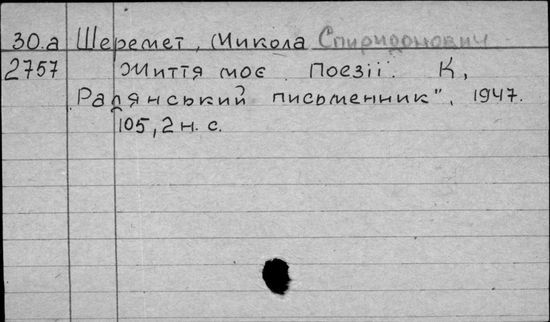 30.а Шеремет, Микола Спиридонович
2757 Життя моє. Поезії. К,
„Радянський письменник", 1947.
105, 2 н. с.